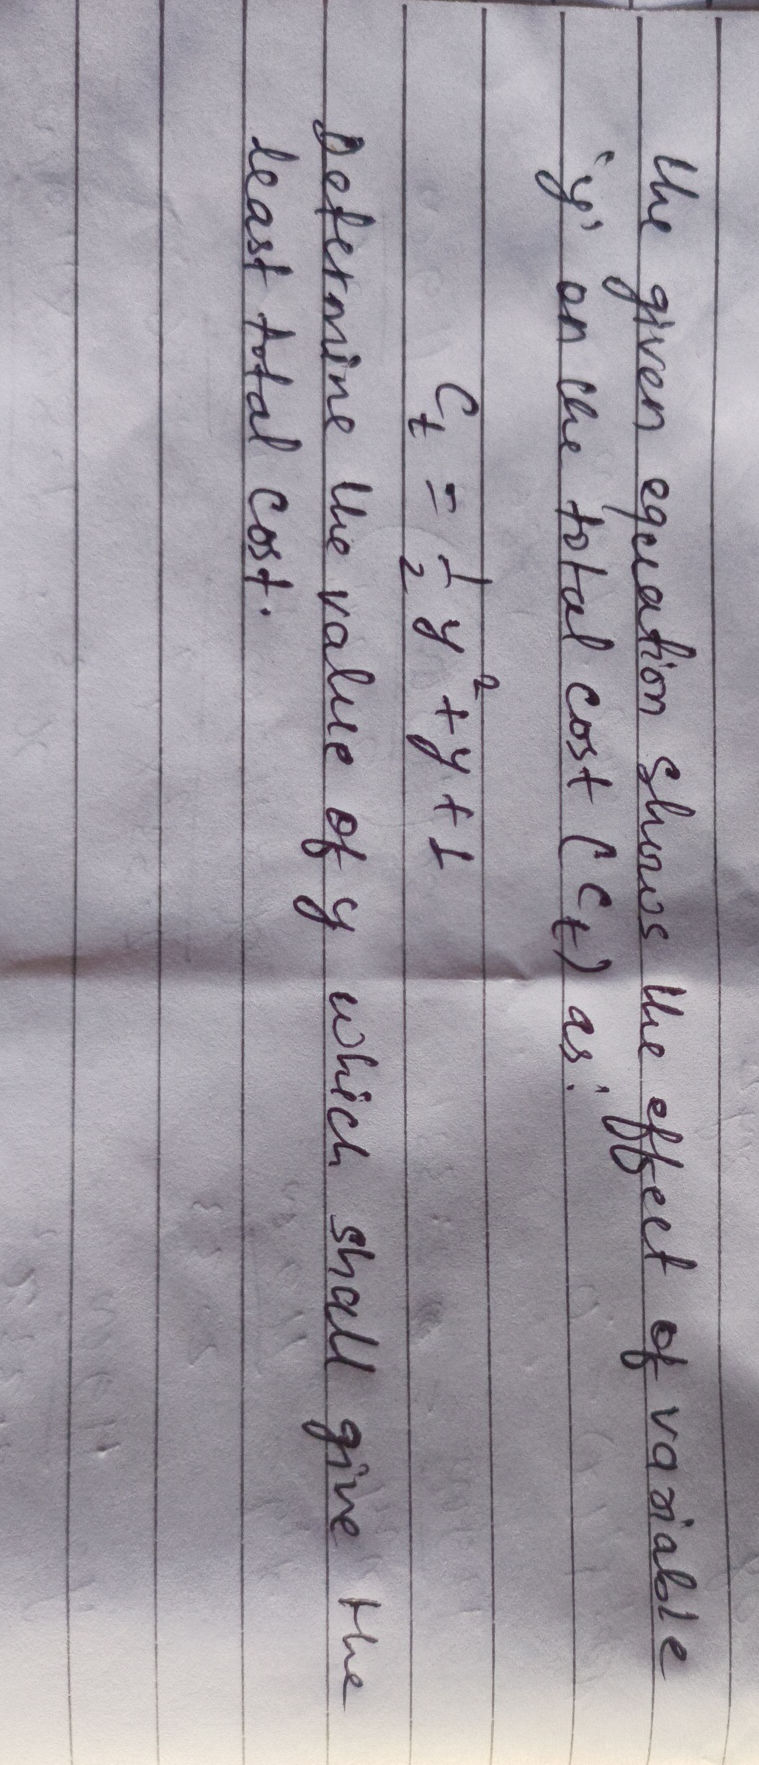 the given equation shows the effect of variable
'y' on the total cost (Ct) as:
Ct = 1/2 y² + y + 1
Determine the value of y which shall give the
least total cost.